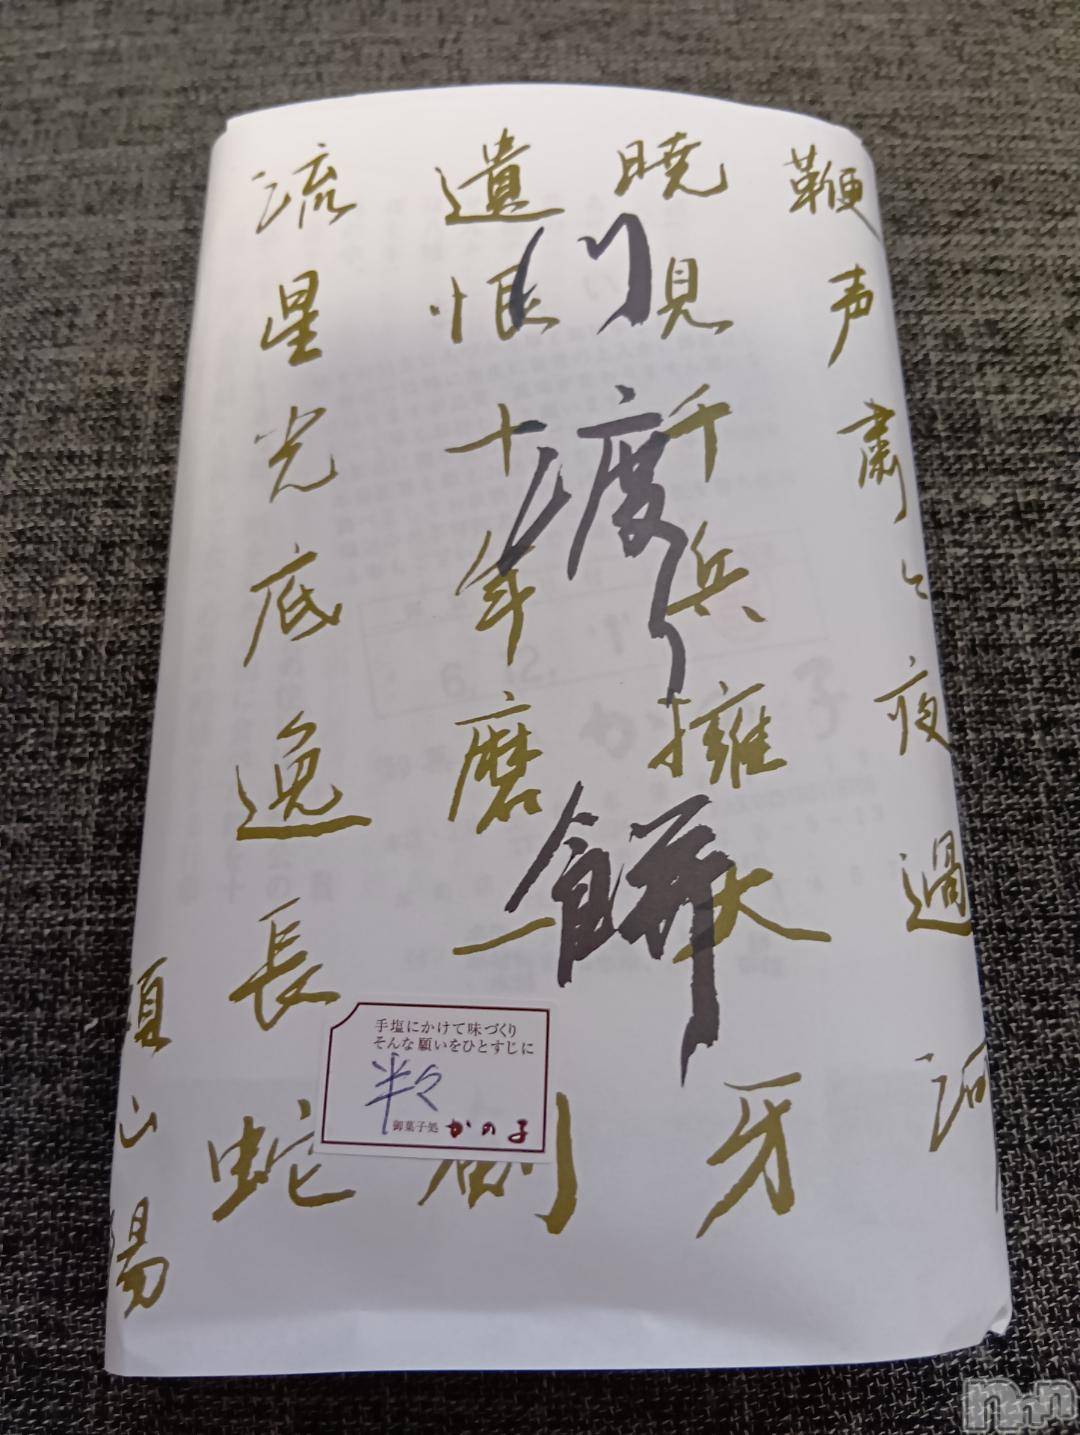 鞭声粛々夜過河
暁見千兵擁大牙
遺恨十年磨一剣
流星光底逸長蛇
頼山陽
川渡り餅
手塩にかけて味づくり
そんな願いをひとすじに
半々
御菓子処 かの子